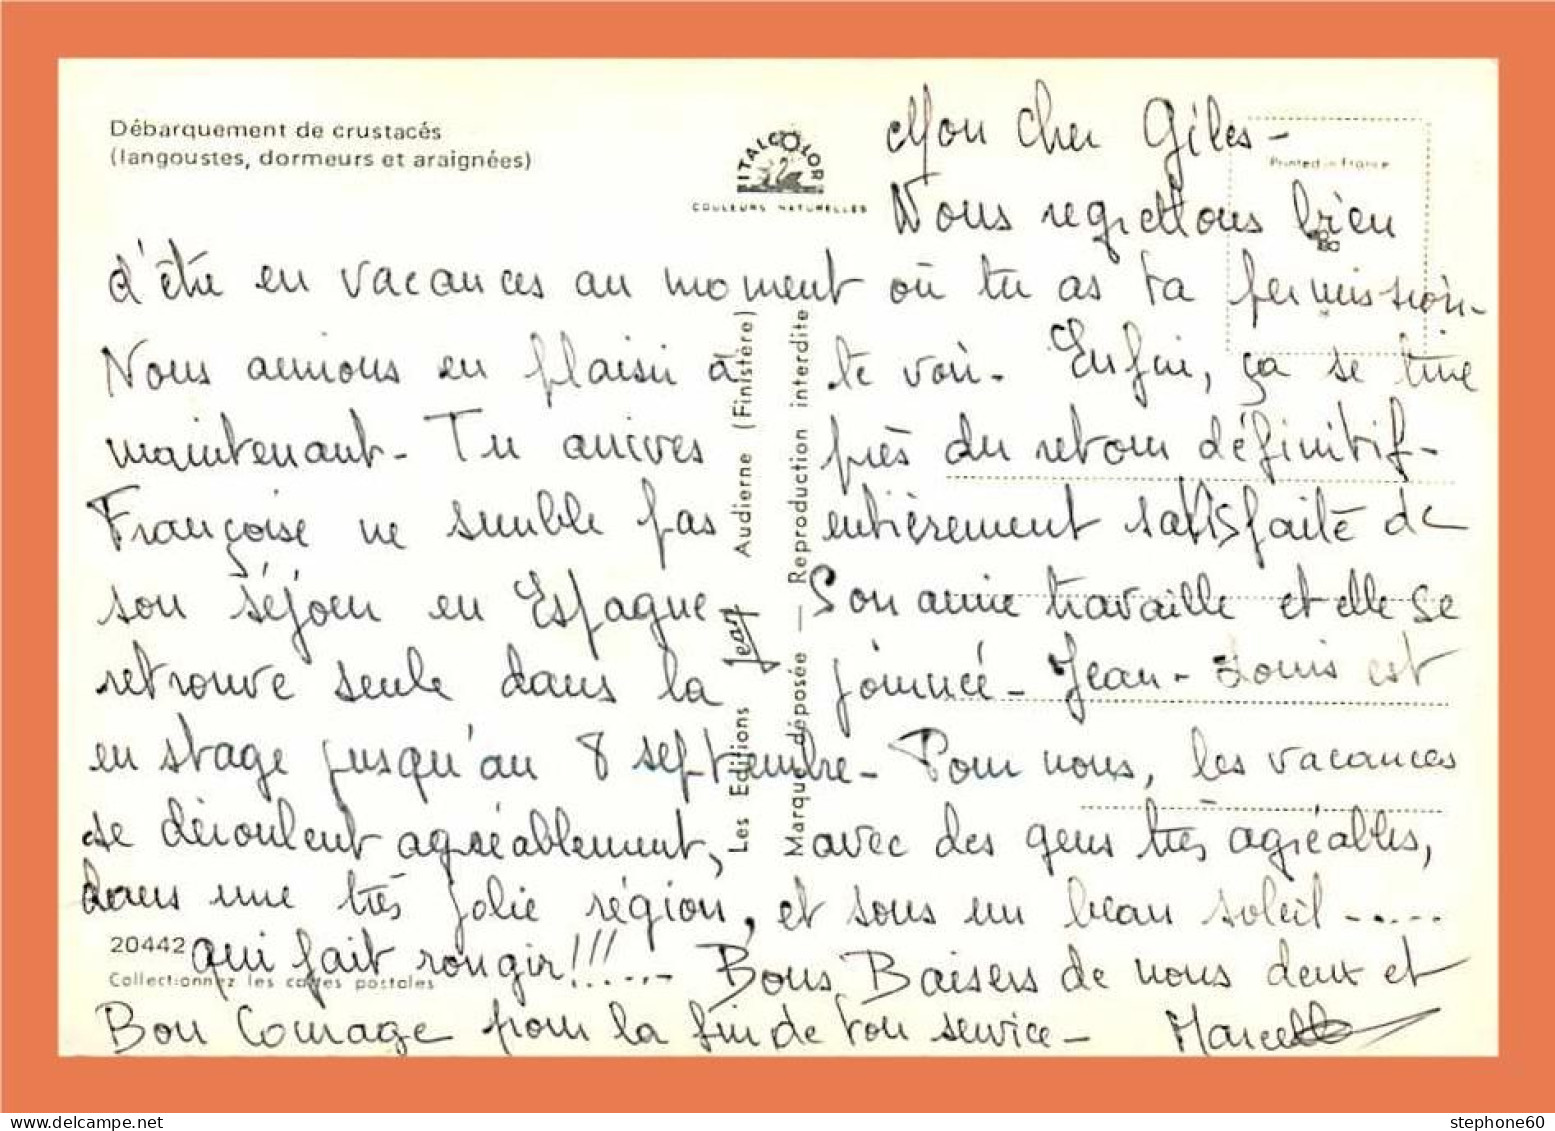 Débarquement de crustacés
(langoustes, dormeurs et araignées)
ITALCOLOR
COULEURS NATURELLES
Printed in France
Mon cher Gilles -
Nous regrettons bien
d'être en vacances au moment où tu as ta permission -
Nous aurions eu plaisir à te voir - Enfin, ça se tire
maintenant - Tu arrives près du retour définitif -
Françoise ne semble pas entièrement satisfaite de
son séjour en Espagne - Son amie travaille et elle se
retrouve seule dans la journée - Jean-Louis est
en stage jusqu'au 8 septembre - Pour nous, les vacances
se déroulent agréablement, avec des gens très agréables,
dans une très jolie région, et sous un beau soleil -.....
qui fait rougir!!!...-
Bons Baisers de nous deux et
Bon Courage pour la fin de ton service -
Marcelle
Les Editions Jean Audierne (Finistère)
Marque déposée — Reproduction interdite
20442
Collectionnez les cartes postales
stephone60